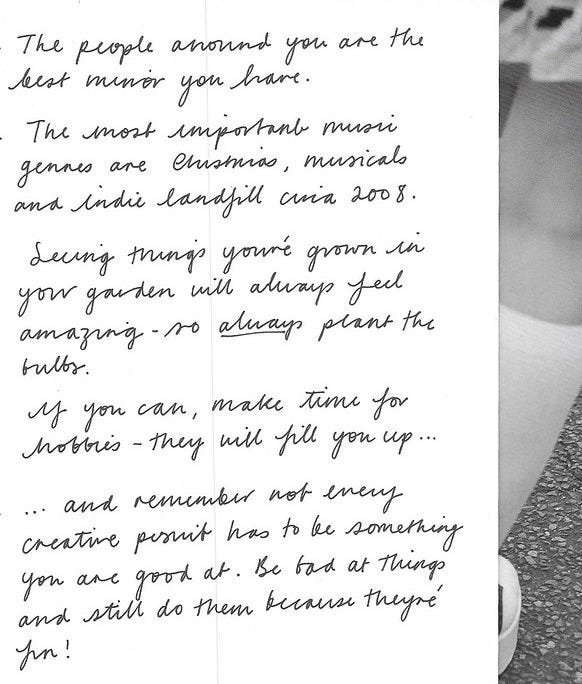 The people around you are the
best mirror you have.
The most important music
genres are Christmas, musicals
and indie landfill circa 2008.
Seeing things you've grown in
your garden will always feel
amazing - so always plant the
bulbs.
If you can, make time for
hobbies - they will fill you up...
... and remember not every
creative pursuit has to be something
you are good at. Be bad at things
and still do them because they're
fun!